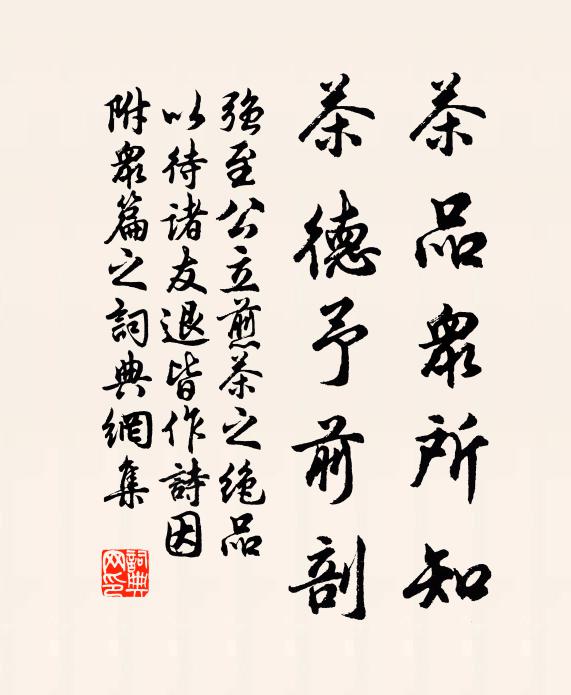 茶品眾所知
茶德予前剖
強至公立煎茶之絶品
以待諸友退皆作詩因
附眾篇之詞典網集
詞典网印